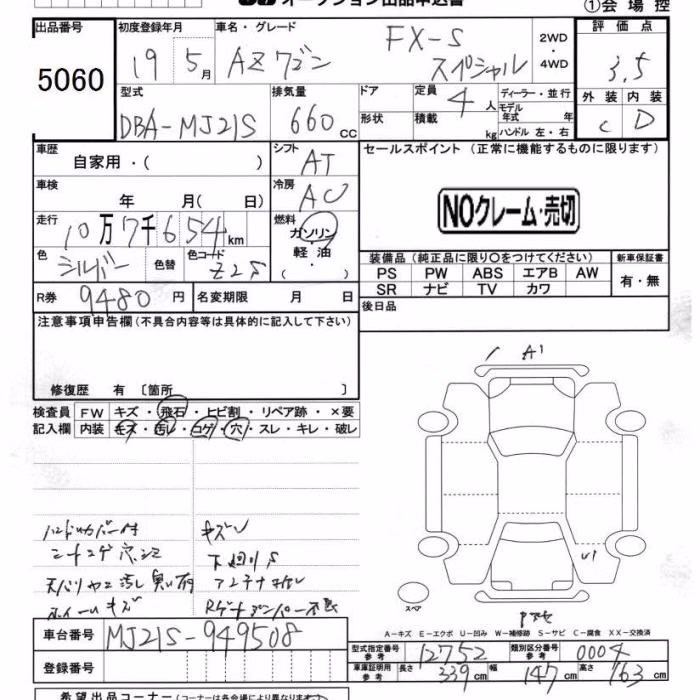 オークション出品申込書 ①会場控
出品番号 初度登録年月 車名・グレード 評価点
5060 19 5月 AZワゴン FX-S スペシャル 2WD ・ 4WD 3.5
型式 排気量 ドア 定員 ディーラー・並行 外装 内装
DBA-MJ21S 660 cc 形状 積載 4人 kg モデル年式 年 ハンドル 左・右 C D
車歴 シフト セールスポイント (正常に機能するものに限ります)
自家用・( ) AT
車検 冷房
年 月( 日) AC NOクレーム・売切
走行 燃料
10万7千654km ガソリン・軽油
色 色替 色コード 装備品 (純正品に限り○をつけてください) 新車保証書
シルバー Z2S PS PW ABS エアB AW 有・無
R券 9480円 名変期限 月 日 SR ナビ TV カワ
注意事項申告欄(不具合内容等は具体的に記入して下さい) 後日品
A1
修復歴 有 〔箇所 〕
検査員 FW キズ・飛石・ヒビ割・リペア跡・×要
記入欄 内装 キズ・汚レ・コゲ・穴・スレ・キレ・破レ
ハンドルカバー付 キズ
シートコゲ穴 下廻りS
U1
ホイールキズ
スペア
A-キズ E-エクボ U-凹み W-補修跡 S-サビ C-腐食 XX-交換済
車台番号 MJ21S-949508
型式指定番号 参考 12752 類別区分番号 参考 0004
登録番号 車庫証明用 参考 長さ 339cm 幅 147cm 高さ 163cm
希望出品コーナー(コーナーは各会場により異なります)